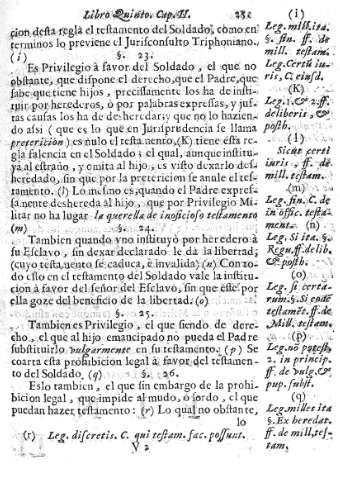 Libro Quinto. Cap. II. 231
cion desta regla el testamento del Soldado, como en
terminos lo previene el Jurisconsulto Triphoniano.
(i) §. 23.
Es Privilegio à favor del Soldado, el que no
obstante, que dispone el derecho, que el Padre, que
sabe que tiene hijos, precissamente los ha de insti-
tuir por herederos, ò por palabras expressas, y jus-
tas causas los ha de desheredar; y que no lo hazien-
do assi (que es lo que en Jurisprudencia se llama
preterition) es nulo el testamento, (K) tiene esta re-
gla falencia en el Soldado: el qual, aunque institu-
ya al estraño, y omita al hijo, es visto dexarlo des-
heredado, sin que por la preterición se anule el tes-
tamento. (l) Lo mesmo es, quando el Padre expres-
samente deshereda al hijo, que por Privilegio Mi-
litar no ha lugar la querella de inoficioso testamento
(m) §. 24.
Tambien quando vno instituyò por heredero à
su Esclavo, sin dexar declarado le dà la libertad;
(cuyo testamento se caduca, è invalida; (n) Con to-
do esso en el testamento del Soldado vale la institu-
cion à favor del señor del Esclavo, sin que este por
ella goze del beneficio de la libertad. (o)
§. 25.
Tambien es Privilegio, el que siendo de dere-
cho, el que al hijo emancipado no pueda el Padre
substituirlo vulgarmente en su testamento: (p) Se
coarta esta prohibicion legal à favor del testamen-
to del Soldado. (q) §. 26.
Eslo tambien, el que sin embargo de la prohi-
bicion legal, que impide al mudo, ò sordo, el que
puedan hazer testamento: (r) Lo qual no obstante,
lo
(r) Leg. discretis. C. qui testam. fac. possunt.
V 2
(i)
Leg. milit. ita.
§. fin. ff. de
mill. testam.
Leg. Certi iu-
ris, C. eiusd.
(K)
Leg. 1. & 2. ff.
de liberis, &
posth.
(l)
Sicut certi
iuris. ff. de
mill. testam.
(m)
Leg. fin. C. de
in offic. testa-
ment. (n)
Leg. Si ita. §.
Regu. ff. de lib.
& posth.
(o)
Leg. si certa-
rum. §. Si eodē
testamēt. ff. de
Mill. testam.
(p)
Leg. in
2. in princip.
ff. de vulg. &
pup. subst.
(q)
Leg. miles ita
§. Ex heredat.
ff. de mill. tes-
tam.